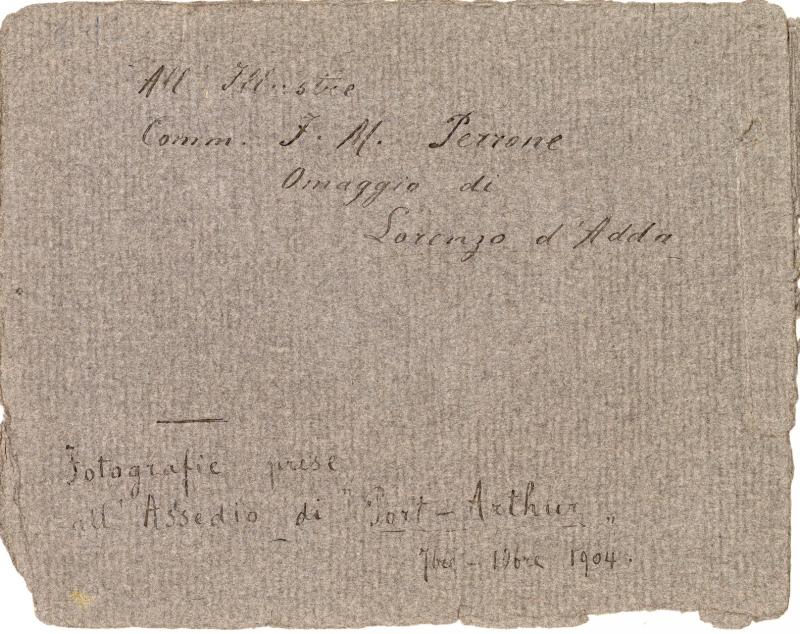 All' Illustre
Comm. F. M. Perrone
Omaggio di
Lorenzo d'Adda
Fotografie prese
all' Assedio di "Port-Arthur„
7bre - 10bre 1904.